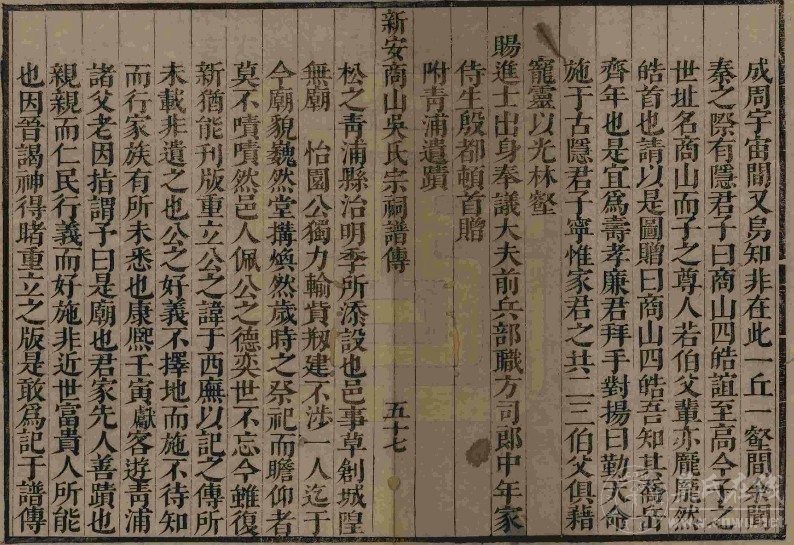 成周宇宙間又烏知非在此一丘一壑間余聞
秦之際有隱君子曰商山四皓誼至高今子之
世址名商山而子之尊人若伯父輩亦龐龐然
皓首也請以是圖贈曰商山四皓吾知其喬岳
齊年也是宜爲壽孝廉君拜手對揚曰勤天命
施于古隱君子寧惟家君之共二三伯父俱藉
寵靈以光林壑
賜進士出身奉議大夫前兵部職方司郎中年家
侍生殷都頓首贈
附靑浦遺蹟
新安商山吳氏宗祠譜傳
五十七
松之靑浦縣治明季所添設也邑事草創城隍
無廟 怡園公獨力輸貲剏建不涉一人迄于
今廟貌巍然堂搆煥然歲時之祭祀而瞻仰者
莫不嘖嘖然邑人佩公之德奕世不忘今雖復
新猶能刊版重立公之諱于西廡以記之傳所
未載非遺之也公之好義不擇地而施不待知
而行家族有所未悉也康熈壬寅獻客遊靑浦
諸父老因指謂予曰是廟也君家先人善蹟也
親親而仁民行義而好施非近世富貴人所能
也因晉謁神得睹重立之版是敢爲記于譜傳
吳氏在线
www.cnwu.net